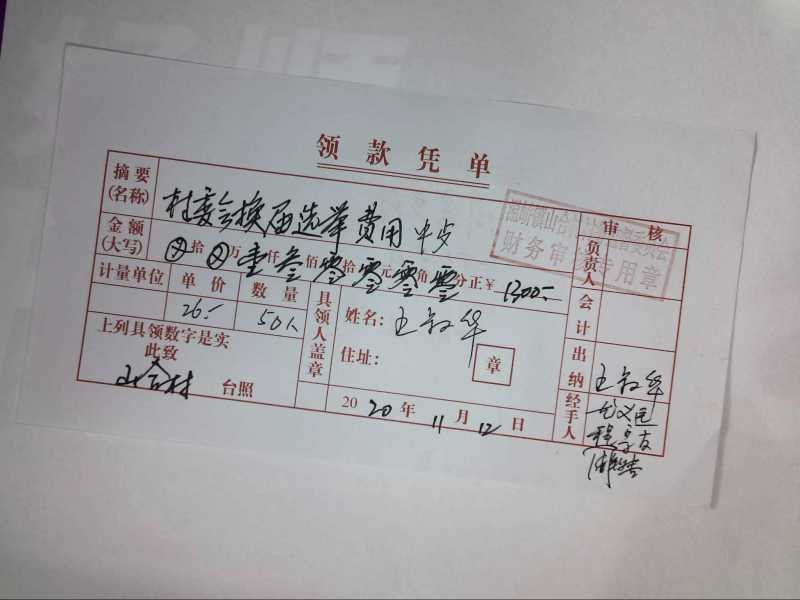 领款凭单
摘要(名称) 村委会换届选举费用
审核
金额(大写) ⊗拾⊗万壹仟叁佰零拾零元零角零分正¥1300.-
负责人
财务审 专用章
计量单位 单价 数量
26.- 50人
会计
具领人盖章
姓名:
住址:
章
上列具领数字是实
此致
山合村 台照
出纳
经手人
2020年11月12日